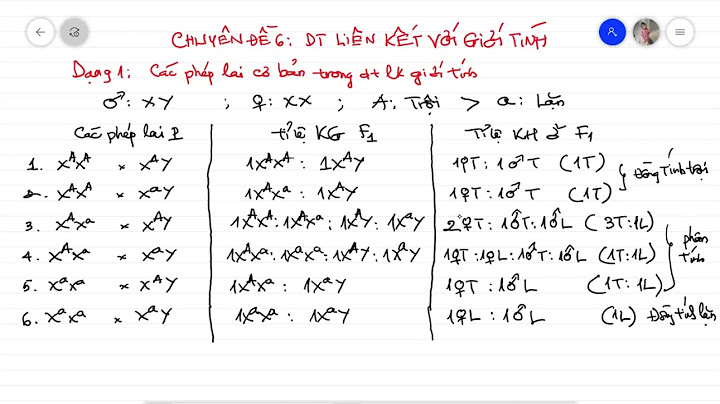 CHUYÊN ĐỀ 6: DT LIÊN KẾT VỚI GIỚI TÍNH
Dạng 1: Các phép lai cơ bản trong dt lk giới tính
♂: XY ; ♀: XX ; A: Trội > a: Lặn
Các phép lai P | Tỉ lệ KG F₁ | Tỉ lệ KH ở F₁
1. XᴬXᴬ × XᴬY | 1XᴬXᴬ : 1XᴬY | 1♀T : 1♂T (1T)
2. XᴬXᴬ × XᵃY | 1XᴬXᵃ : 1XᴬY | 1♀T : 1♂T (1T) } Đồng tính trội
3. XᴬXᵃ × XᴬY | 1XᴬXᴬ : 1XᴬXᵃ : 1XᴬY : 1XᵃY | 2♀T : 1♂T : 1♂L (3T:1L)
4. XᴬXᵃ × XᵃY | 1XᴬXᵃ : 1XᵃXᵃ : 1XᴬY : 1XᵃY | 1♀T : 1♀L : 1♂T : 1♂L (1T:1L) } phân tính
5. XᵃXᵃ × XᴬY | 1XᴬXᵃ : 1XᵃY | 1♀T : 1♂L (1T:1L)
6. XᵃXᵃ × XᵃY | 1XᵃXᵃ : 1XᵃY | 1♀L : 1♂L (1L) Đồng tính lặn